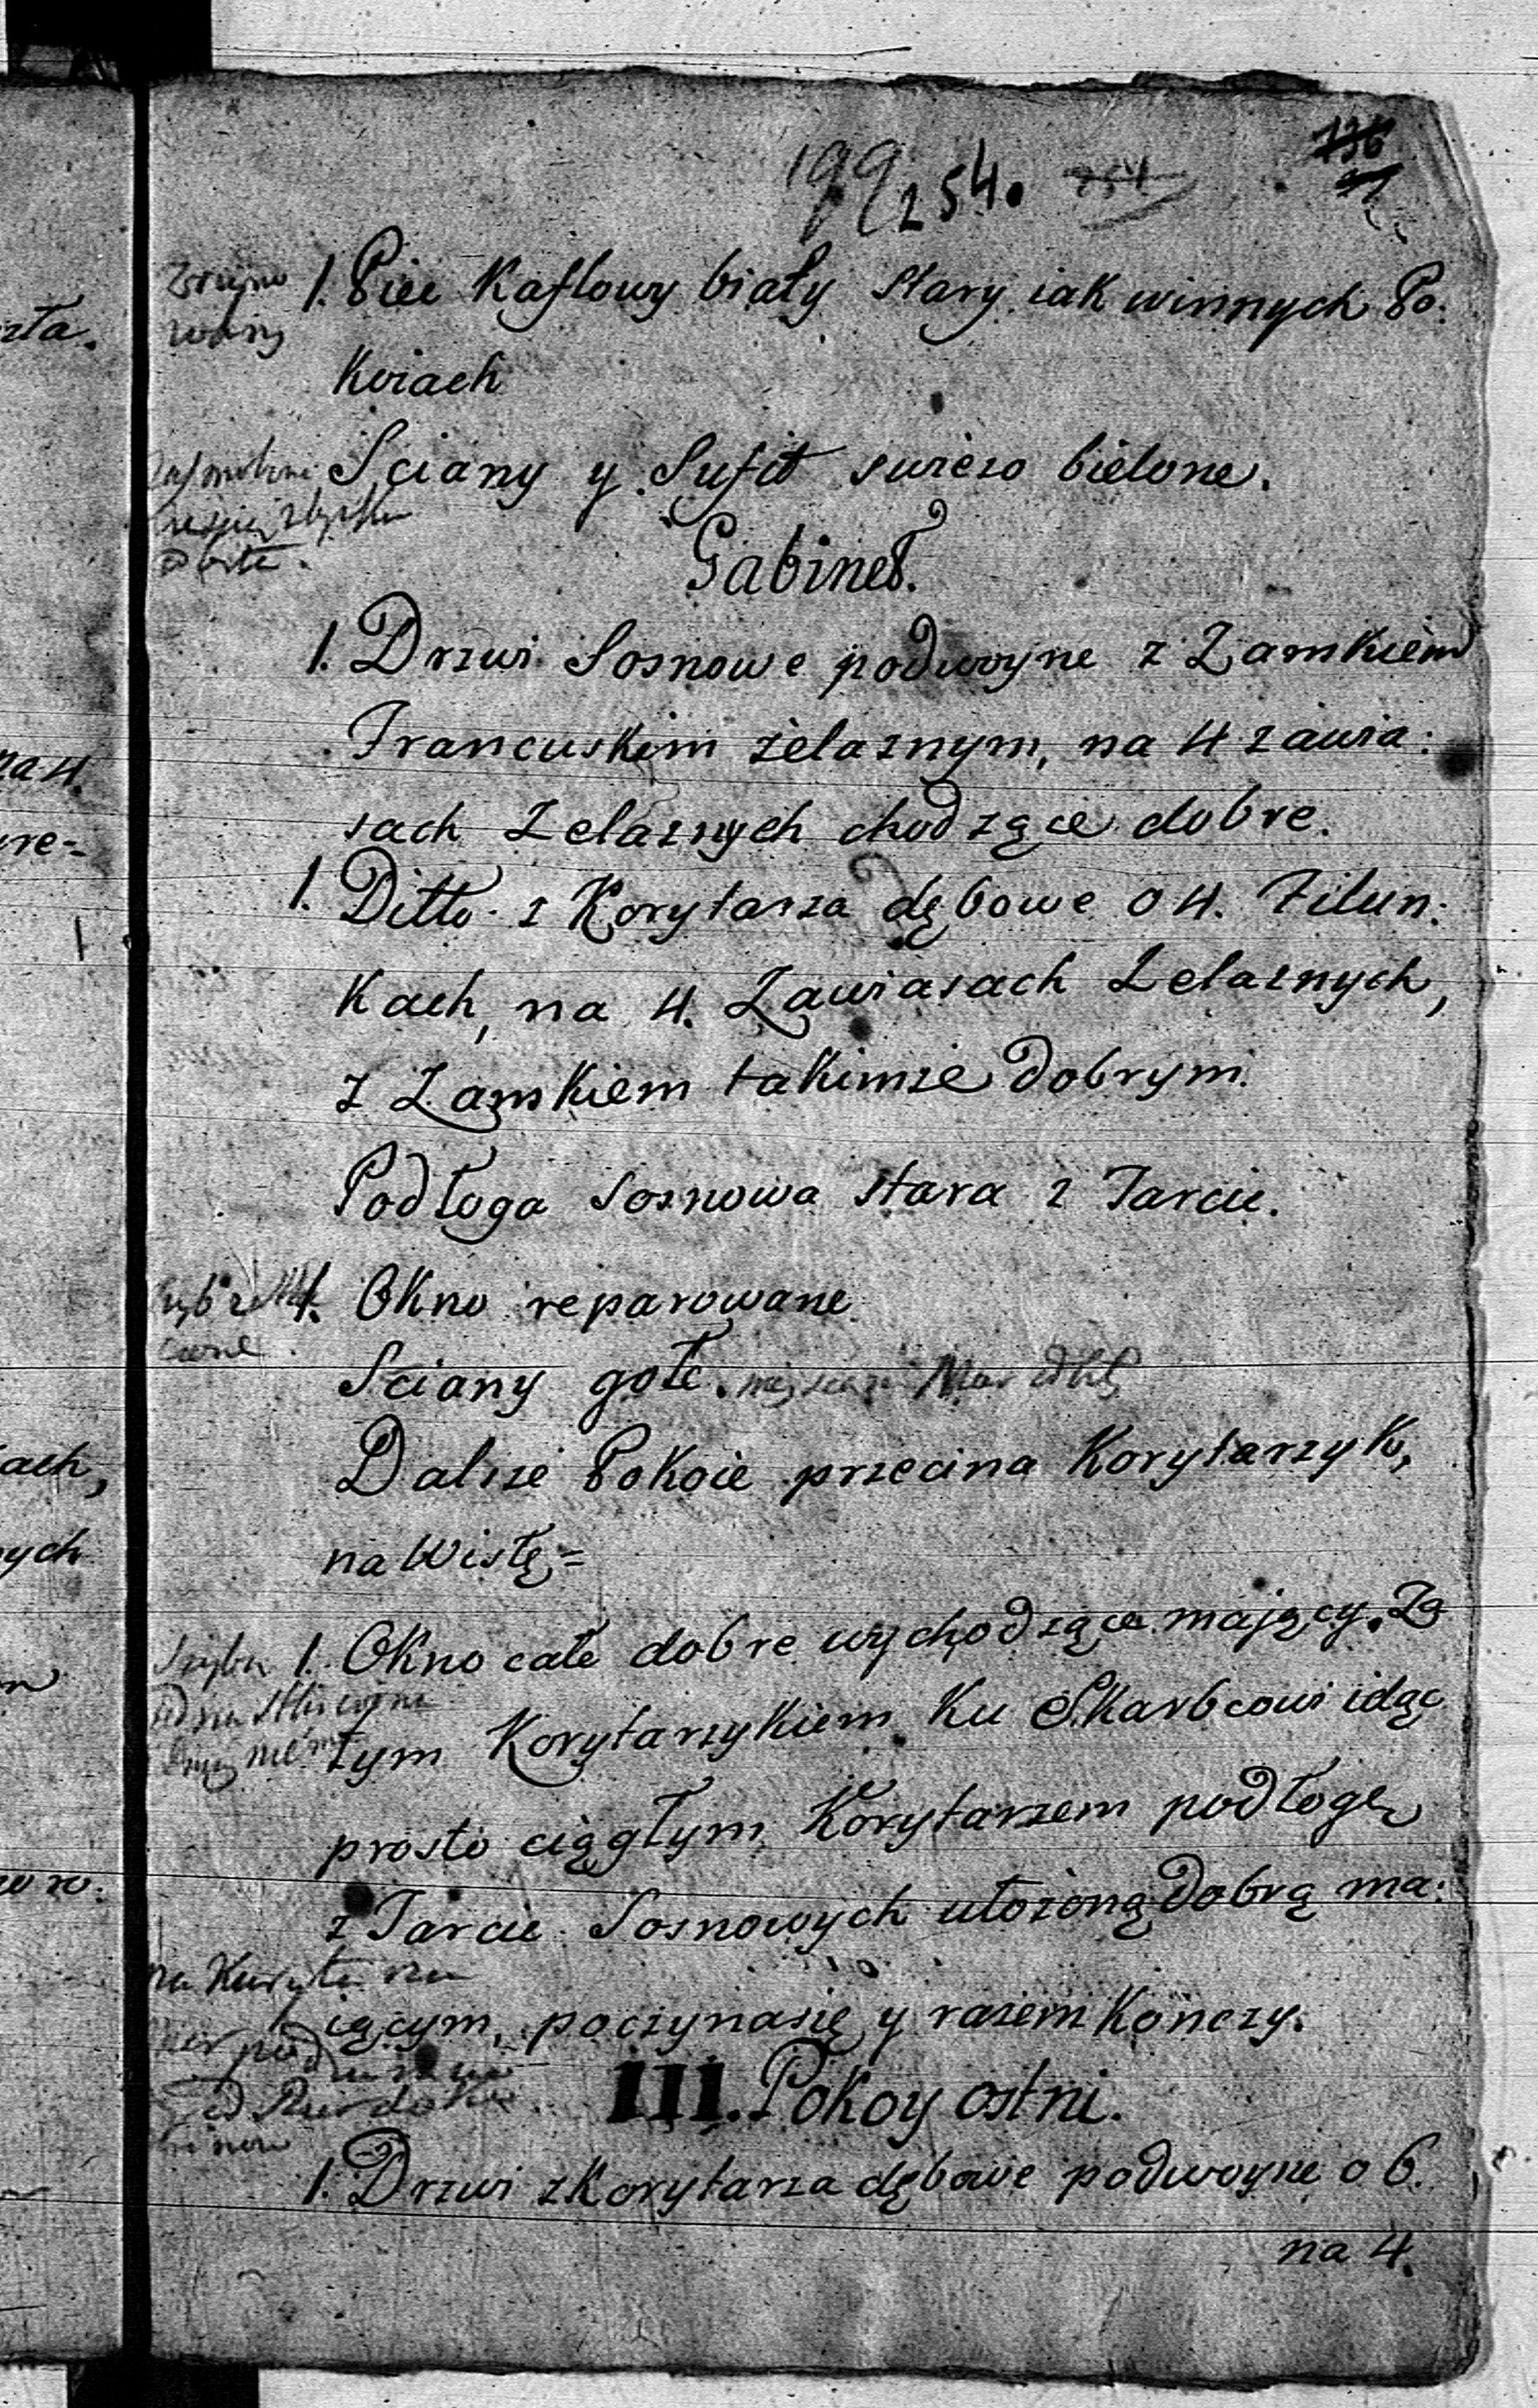 199 254.
Zruyno 1. Piec Kaflowy biały stary iak winnych Po:
wany
Koiach
Sciany y Sufit swiezo bielone.
obite.
Gabinet.
1. Drzwi Sosnowe podwoyne z Zamkiem
Francuskim żelaznym, na 4 zawia:
sach Zelaznych chodzące dobre.
1. Ditto z Korytarza dębowe o 4. Filun:
Kach, na 4. Zawiasach Zelaznych,
z Zamkiem takimze dobrym.
Podłoga Sosnowa stara z Tarcic.
1. Okno reparowane
Sciany gołe.
Dalsze Pokoie przecina Korytarzyk,
na Wisłę =
Szyba 1. Okno całe dobre wychodzące mający. Za
tym Korytarzykiem Ku Skarbcowi idąc
prosto ciągłym Korytarzem podłogę
z Tarcic Sosnowych ułożoną dobrą ma:
na Kurytarzu
iącym, poczynasię y razem Kończy.
III. Pokoy ostni.
1. Drzwi zKorytarza dębowe podwoyne o 6.
na 4.